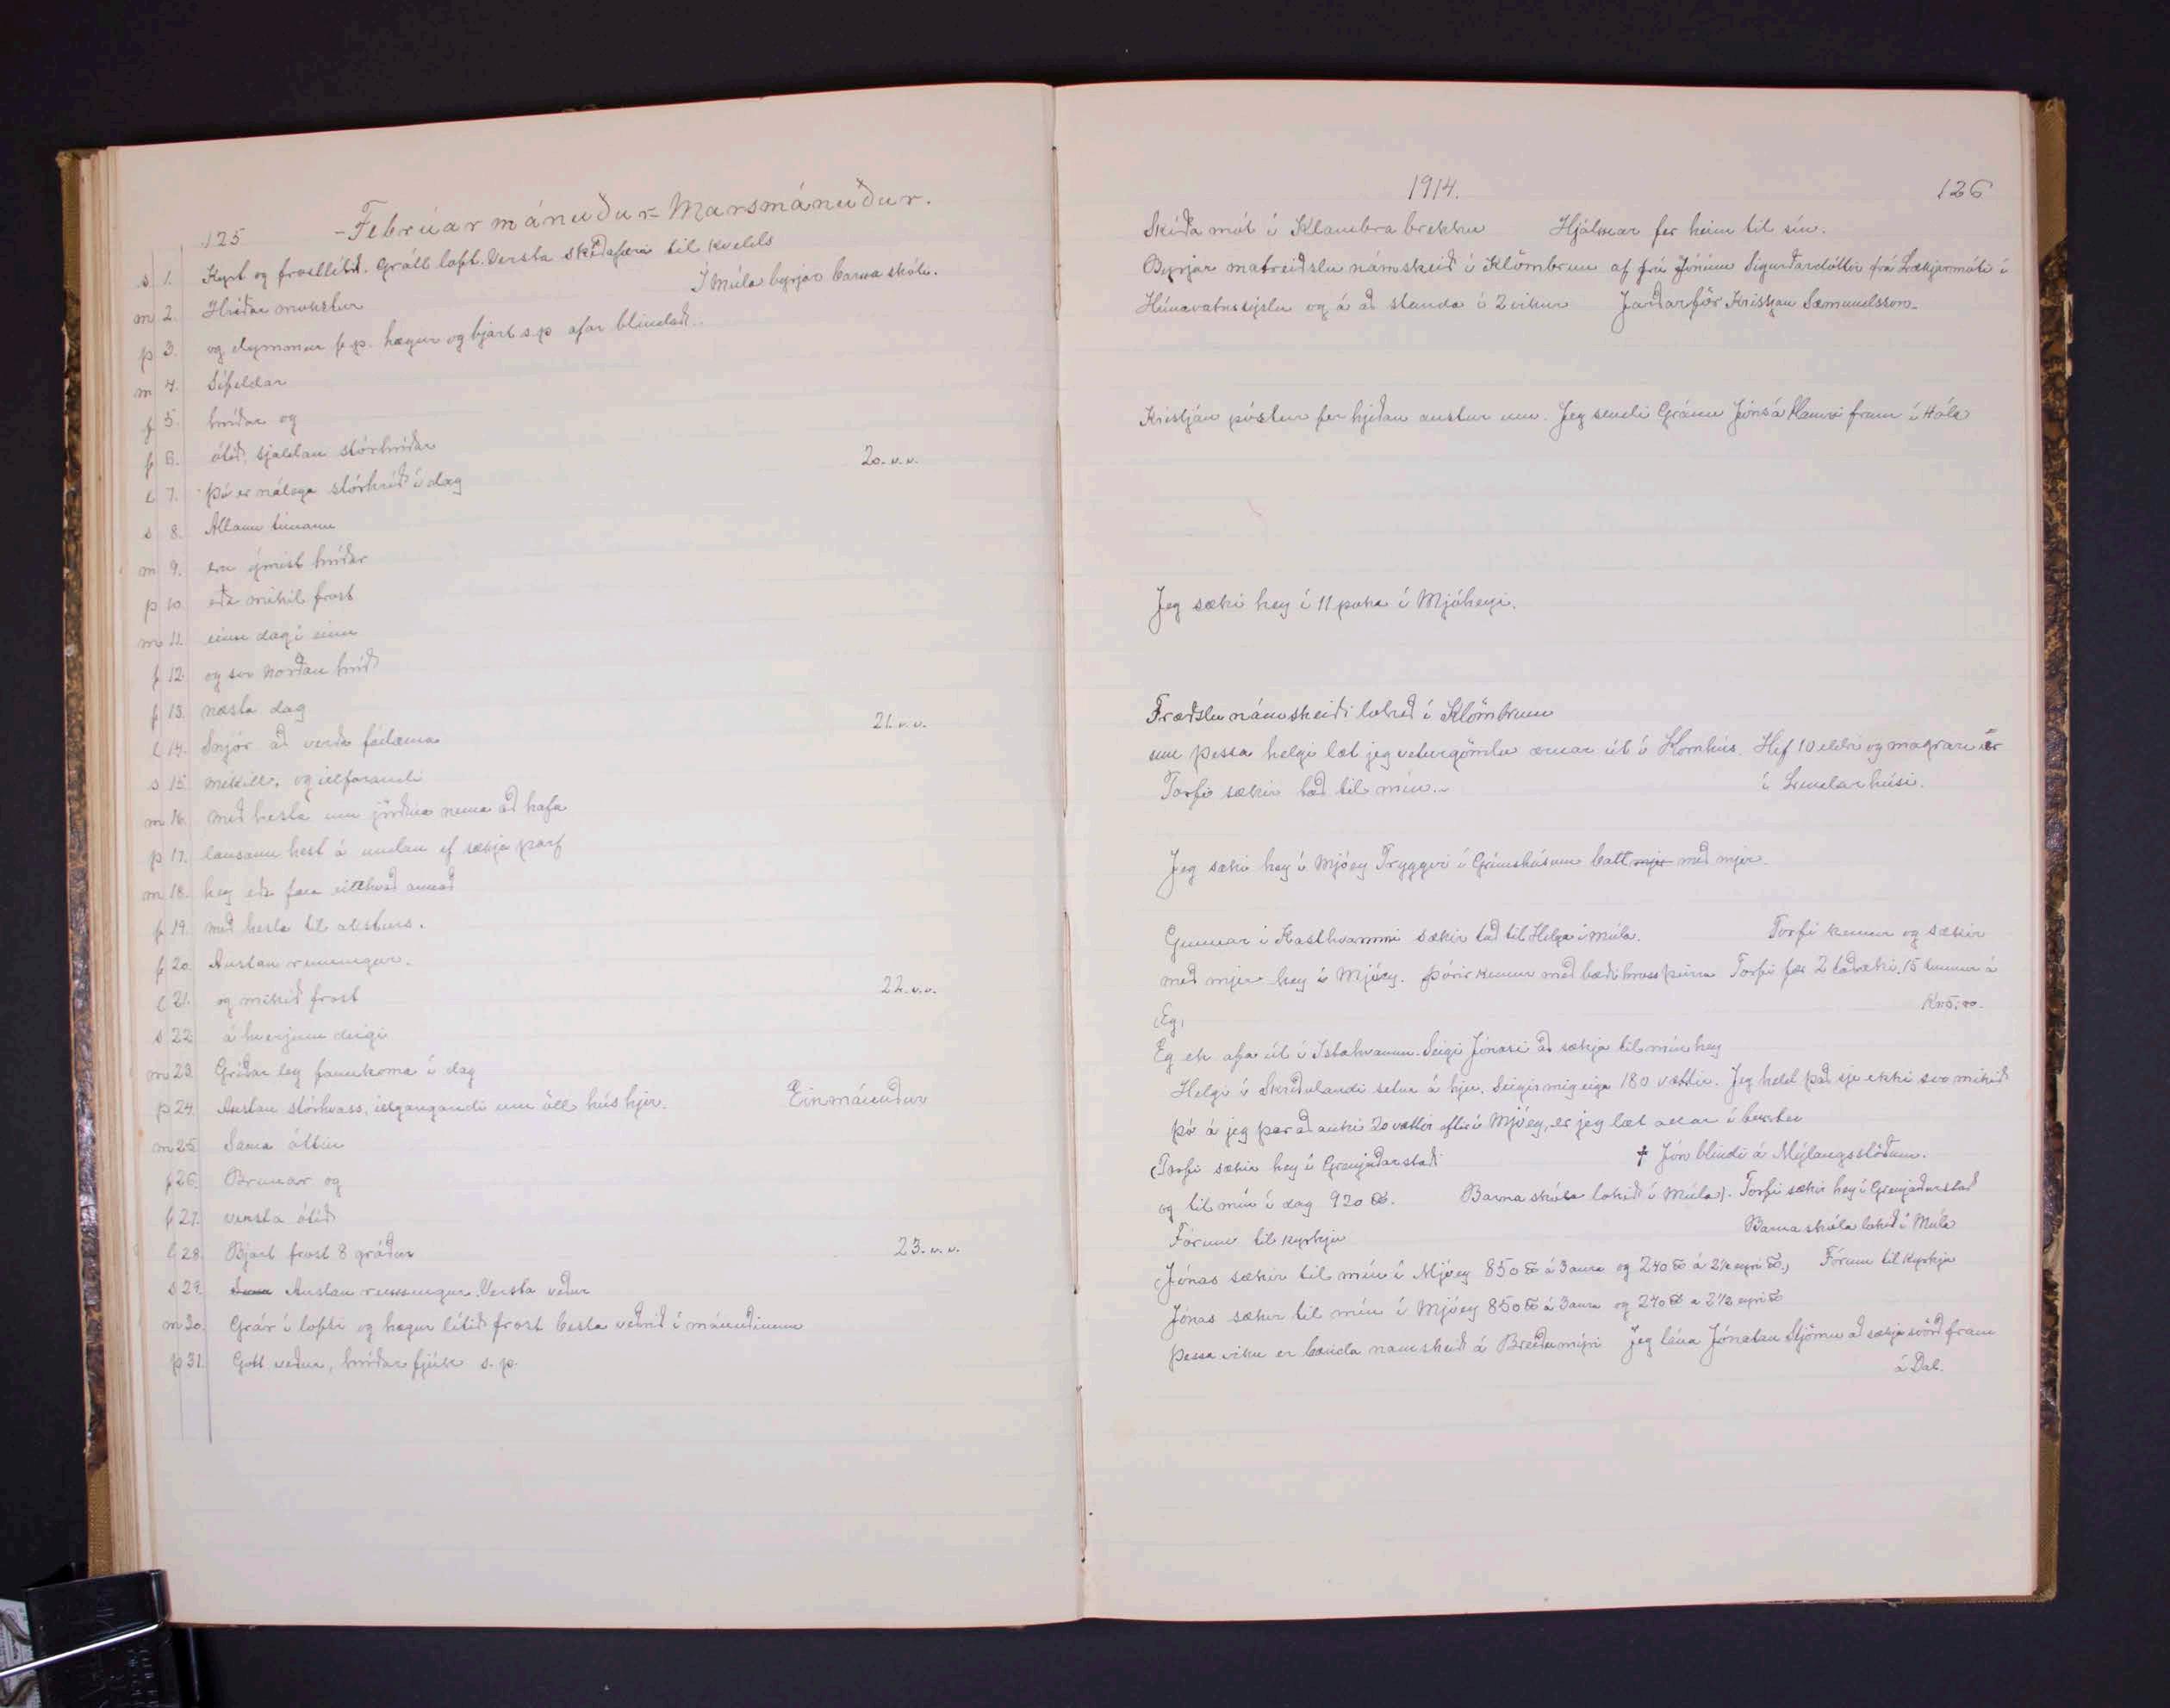 125 -Febrúarmánuður- Marsmánuður.
s 1. Kyrt og frostlítið. Grátt loft. Versta skíðafæri til kvelds
m 2. Hríðar mokstur Í Múla byrjar barna skóli.
þ 3. og dymmur f.p. hægur og bjart s.p. afar blindað.
m 4. Sífeldar
f 5. hríðar og
f 6. ótíð, sjaldan stórhríðar
l 7. þó er nálega stórhríð í dag 20. v.v.
s 8. Allann tímann
m 9. eru ýmist hríðar
þ 10. eða mikil frost
m 11. einn dagi einn
f 12. og svo norðan hríð
f 13. næsta dag
l 14. Snjór að verða fádæma 21. v.v.
s 15. mikill, og illfarandi
m 16. með hesta um jörðina nema að hafa
þ 17. lausann hest á undan ef sækja þarf
m 18. hey eða fara eitthvað annað
f 19. með hesta til aksturs.
f 20. Austan renningur.
l 21. og mikið frost 22. v.v.
s 22. á hverjum deigi
m 23. Gríðarleg fannkoma í dag
þ 24. Austan stórhvass, illgangandi um öll hús hjer. Einmánuður
m 25. Sama áttin
f 26. Brunar og
f 27. versta ótíð
l 28. Bjart frost 8 gráður 23. v.v.
s 29. Austan renningur. Versta veður
m 30. Grár í lofti og hægur lítið frost besta veðrið í mánuðinum
þ 31. Gott veður, hríðar fjúk s.p.
1914. 126
Skíða mót í Klambra brekku Hjálmar fer heim til sín.
Byrjar matreiðslu námskeið í Klömbrum af frú Jónínu Sigurðardóttir frá Lækjamóti í
Húnavatnssýslu og á að standa í 2 vikur Jarðarför Kristjan Sæmundsson.
Kristján póstur fer hjeðan austur um. Jeg sendi Gránu Jóns á Hamri fram í Hóla
Jeg sæki hey í 11 poka í Mjóheyi.
Fræðslu námskeiði lokið í Klömbrum
um þessa helgi læt jeg veturgömlu ærnar út í Kornhús. Hef 10 eldri og magrari ær
Torfi sækir tað til mín. í Lendarhúsi.
Jeg sæki hey í Mjóey Tryggvi í Grímshúsum batt mjer með mjer.
Gunnar í Kasthvammi sækir tað til Helga í Múla. Torfi kemur og sækir
með mjer hey í Mjóey. Þórir kemur með bæði hross þeirra Torfi fær 2 taðæki, 15 tunnur á
(Eg, Kr 5,00.
Eg ek afa út í Istahvamm. Seigi Jónasi að sækja til mín hey
Helgi í Skriðulandi setur á hjer. Seigir mig eiga 180 vættir. Jeg held það sje ekki svo mikið
þó á jeg þar að auki 20 vættir eftir í Mjóey, er jeg læt allar í burtu
(Torfi sækir hey í Grenjaðarstað † Jón blindi á Mýlaugsstöðum.
og til mín í dag 920 ℔. Barna skóla lokið í Múla). Torfi sækir hey í Grenjaðarstað
Förum til kyrkju Barna skóla lokið í Múla
(Jónas sækir til mín í Mjóey 850 ℔ á 3 aura og 240 ℔ á 2½ eyri ℔,) Fórum til kyrkju
Jónas sækir til mín í Mjóey 850 ℔ á 3 aura og 240 ℔ a 2½ eyri ℔
þessa viku er bænda namskeið á Breiðumýri Jeg lána Jónatan Stjörnu að sækja svörð fram
á Dal.